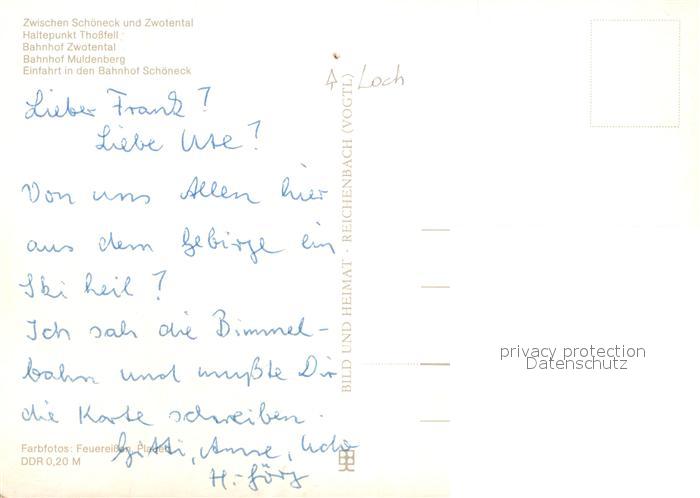 Zwischen Schöneck und Zwotental
Haltepunkt Thoßfell
Bahnhof Zwotental
Bahnhof Muldenberg
Einfahrt in den Bahnhof Schöneck
Loch
Lieber Frank!
Liebe Ute!
Von uns Allen hier
aus dem Gebirge ein
Ski heil!
Ich sah die Bimmel-
bahn und mußte Dir
die Karte schreiben.
Gitti, Anne, Udo
H.-Jörg
BILD UND HEIMAT · REICHENBACH (VOGTL)
Farbfotos: Feuereißen, Plauen
DDR 0,20 M
privacy protection
Datenschutz